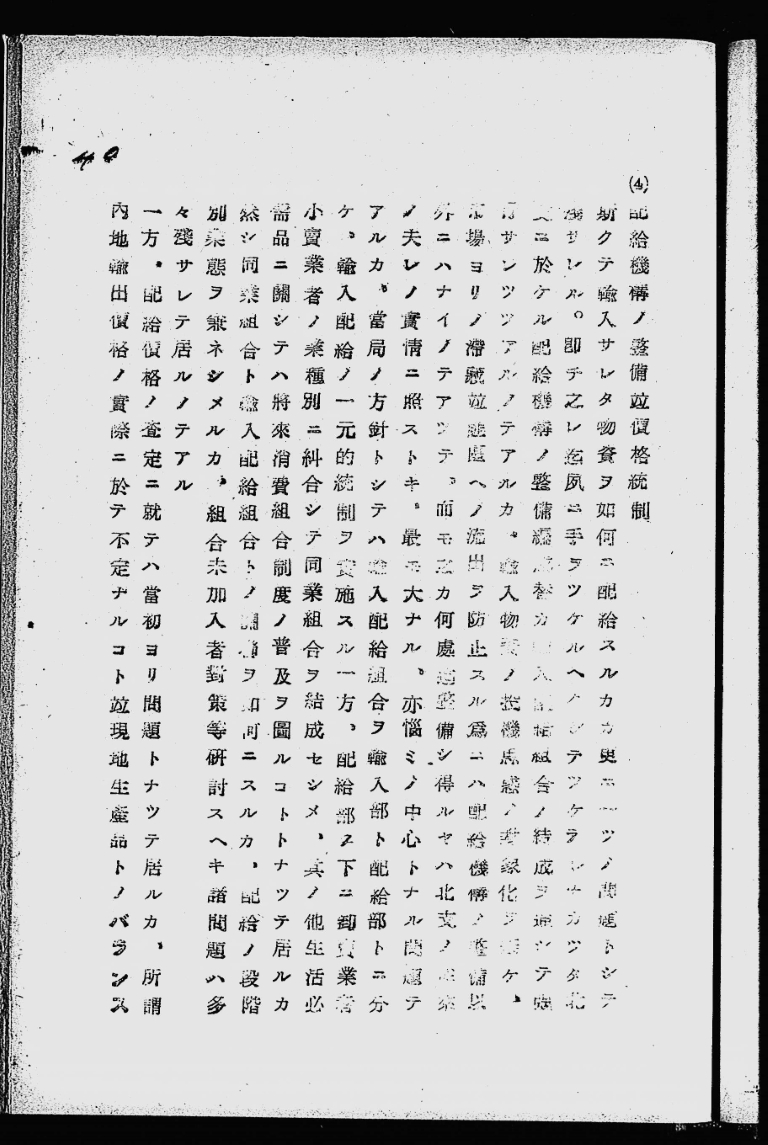 40
(4) 配給機構ノ整備竝價格統制
斯クテ輸入サレタ物資ヲ如何ニ配給スルカカ更ニ一ツノ問題トシテ
殘サレル。卽チ之レ迄夙ニ手ヲツケルヘクシテツケラレナカツタ北
支ニ於ケル配給機構ノ整備 替カ輸入配給組合ノ結成ヲ通シテ
行サレツツアルノテアルカ。輸入物資ノ投機思惑ノ對象化ヲ避ケ、
市場ヨリノ滯 竝 ヘノ流出ヲ防止スル爲ニハ配給機構ノ整備以
外ニハナイノテアツテ。而モ之カ何處迄整備シ得ルヤハ北支ノ
ノ夫レノ實情ニ照ストキ。最モ大ナル。亦惱ミノ中心トナル問題テ
アルカ。當局ノ方針トシテハ輸入配給組合ヲ輸入部ト配給部トニ分
ケ、輸入配給ノ一元的統制ヲ實施スル一方、配給部ノ下ニ卸賣業者
小賣業者ノ業種別ニ糾合シテ同業組合ヲ結成セシメ、其ノ他生活必
需品ニ關シテハ將來消費組合制度ノ普及ヲ圖ルコトトナツテ居ルカ
然シ同業組合ト輸入配給組合トノ關係ヲ如何ニスルカ、配給ノ段階
別業態ヲ兼ネシメルカ、組合未加入者對策等硏討スヘキ諸問題ハ多
々殘サレテ居ルノテアル
一方。配給價格ノ査定ニ就テハ當初ヨリ問題トナツテ居ルカ、所謂
內地輸出價格ノ實際ニ於テ不定ナルコト竝現地生產品トノバランス